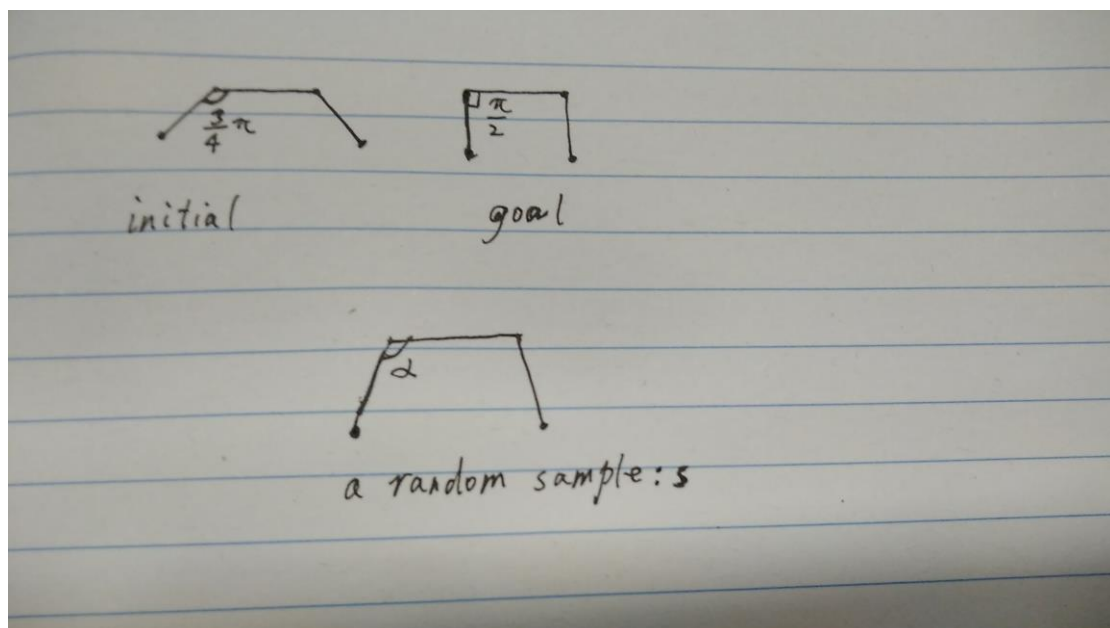 3/4 π
π/2
initial
goal
α
a random sample: s